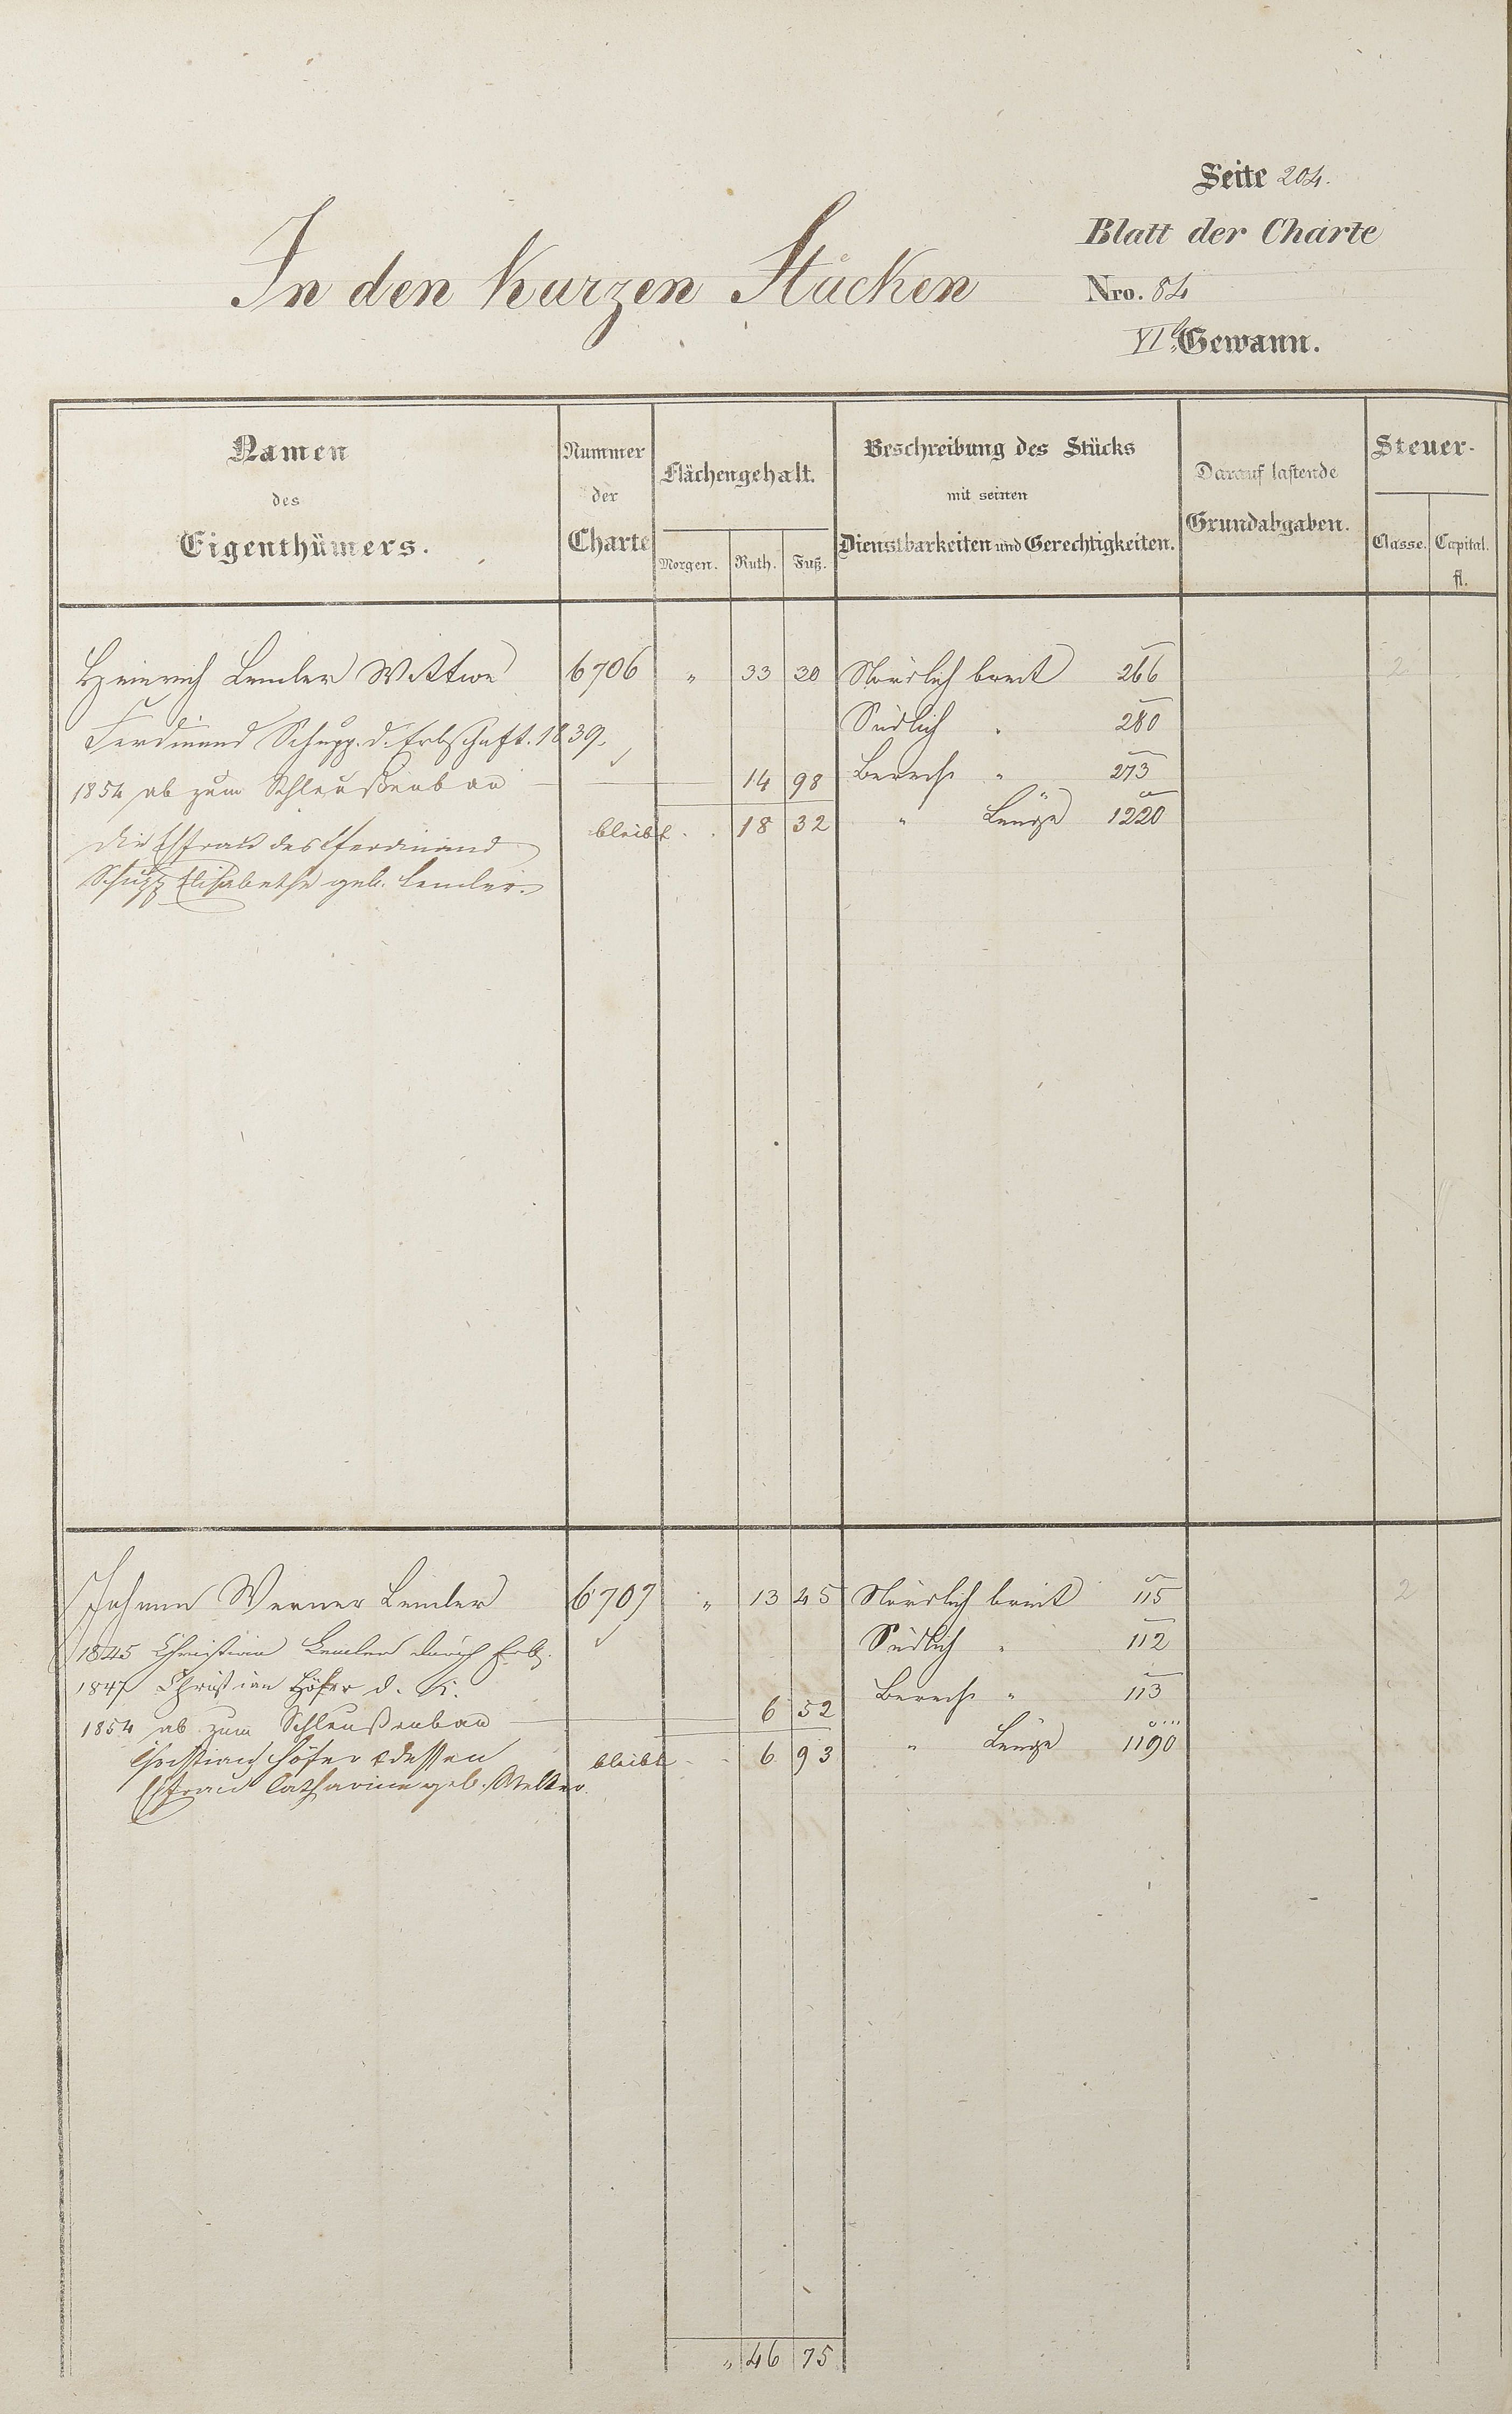 Seite 204.
Blatt der Charte
In den kurzen Stücken
Nro. 84
VIte Gewann.
Namen des Eigenthümers.
Nummer der Charte
Flächengehalt.
Morgen. Ruth. Fuß.
Beschreibung des Stücks mit seinen Dienstbarkeiten und Gerechtigkeiten.
Darauf lastende Grundabgaben.
Steuer-
Classe. Capital. fl.
Heinrich Lemler Wittwe 6706 „ 33 30 Nördlich breit 266 2
Ferdinand Schupp. d. Erbschaft. 1839. Südlich „ 280
1854 ab zum Schleußenbau 14 98 Berech „ 273
bleibt . . 18 32 „ Länge 1220
die Ehefrau des Ferdinand
Schupp Elisabethe geb. Lemler.
Johann Werner Lemler 6707 „ 13 45 Nördlich breit 115 2
1845 Christian Lemler durch Erb. Südlich „ 112
1847 Christian Höfer d. K. Berech „ 113
1854 ab zum Schleußenbau 6 52
Christian Höfer & dessen bleibt 6 93 „ Länge 1190
Ehefrau Catharine geb. Welter.
„ 46 75